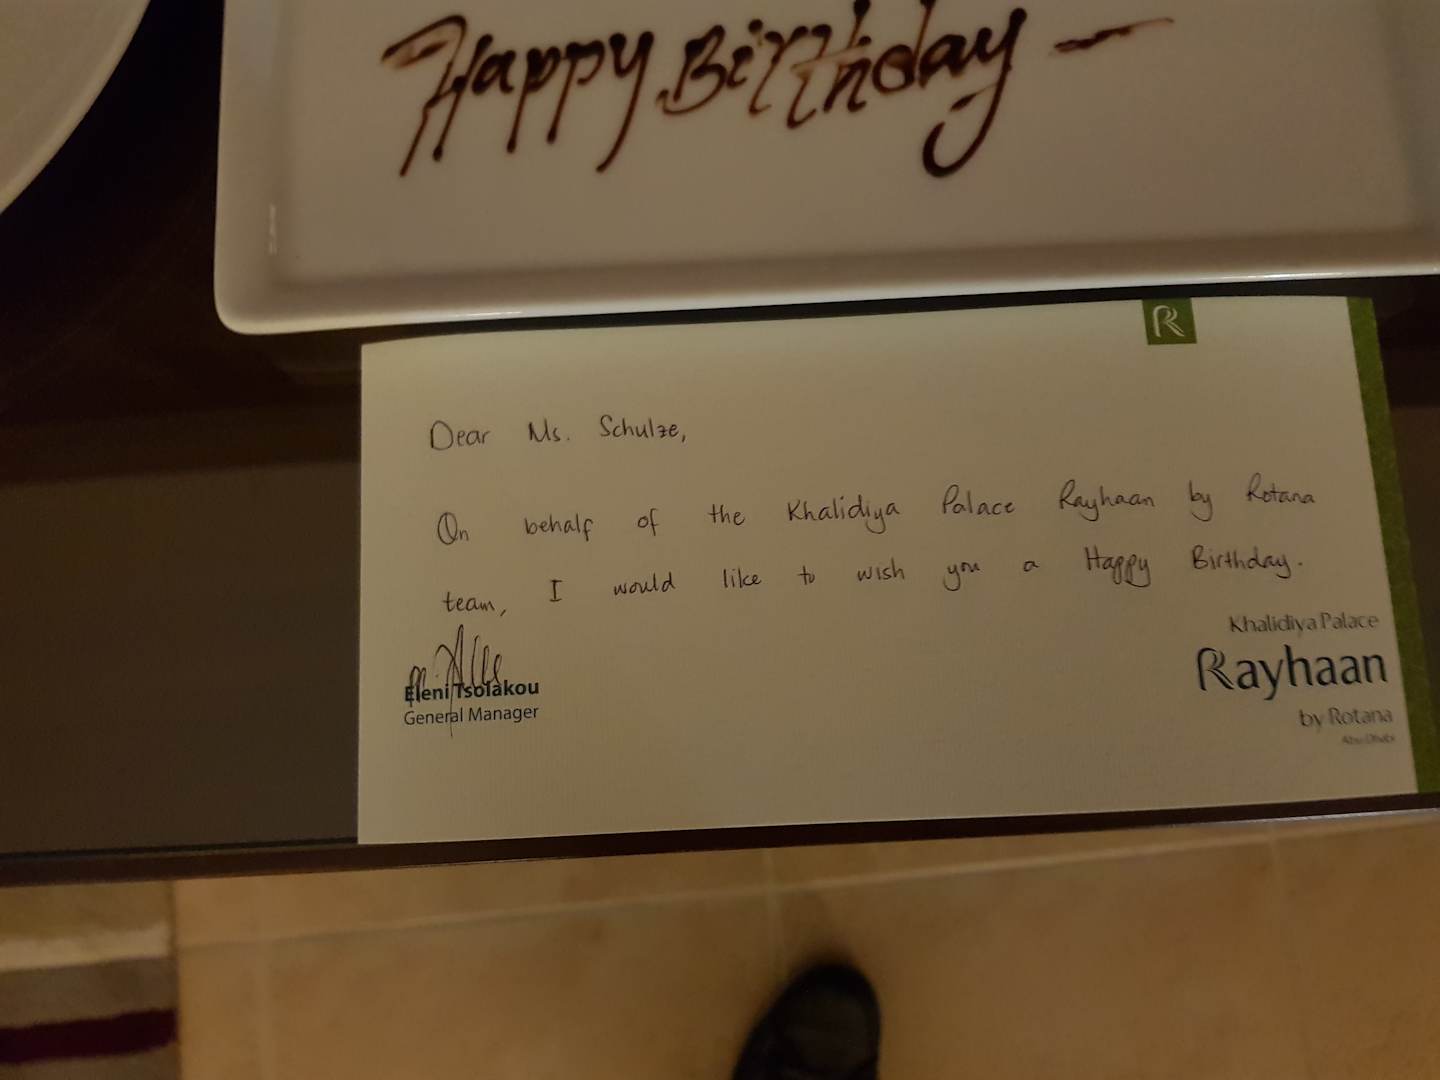 Happy Birthday
R
Dear Ms. Schulze,
On behalf of the Khalidiya Palace Rayhaan by Rotana
team, I would like to wish you a Happy Birthday.
Eleni Tsolakou
General Manager
Khalidiya Palace
Rayhaan
by Rotana
Abu Dhabi